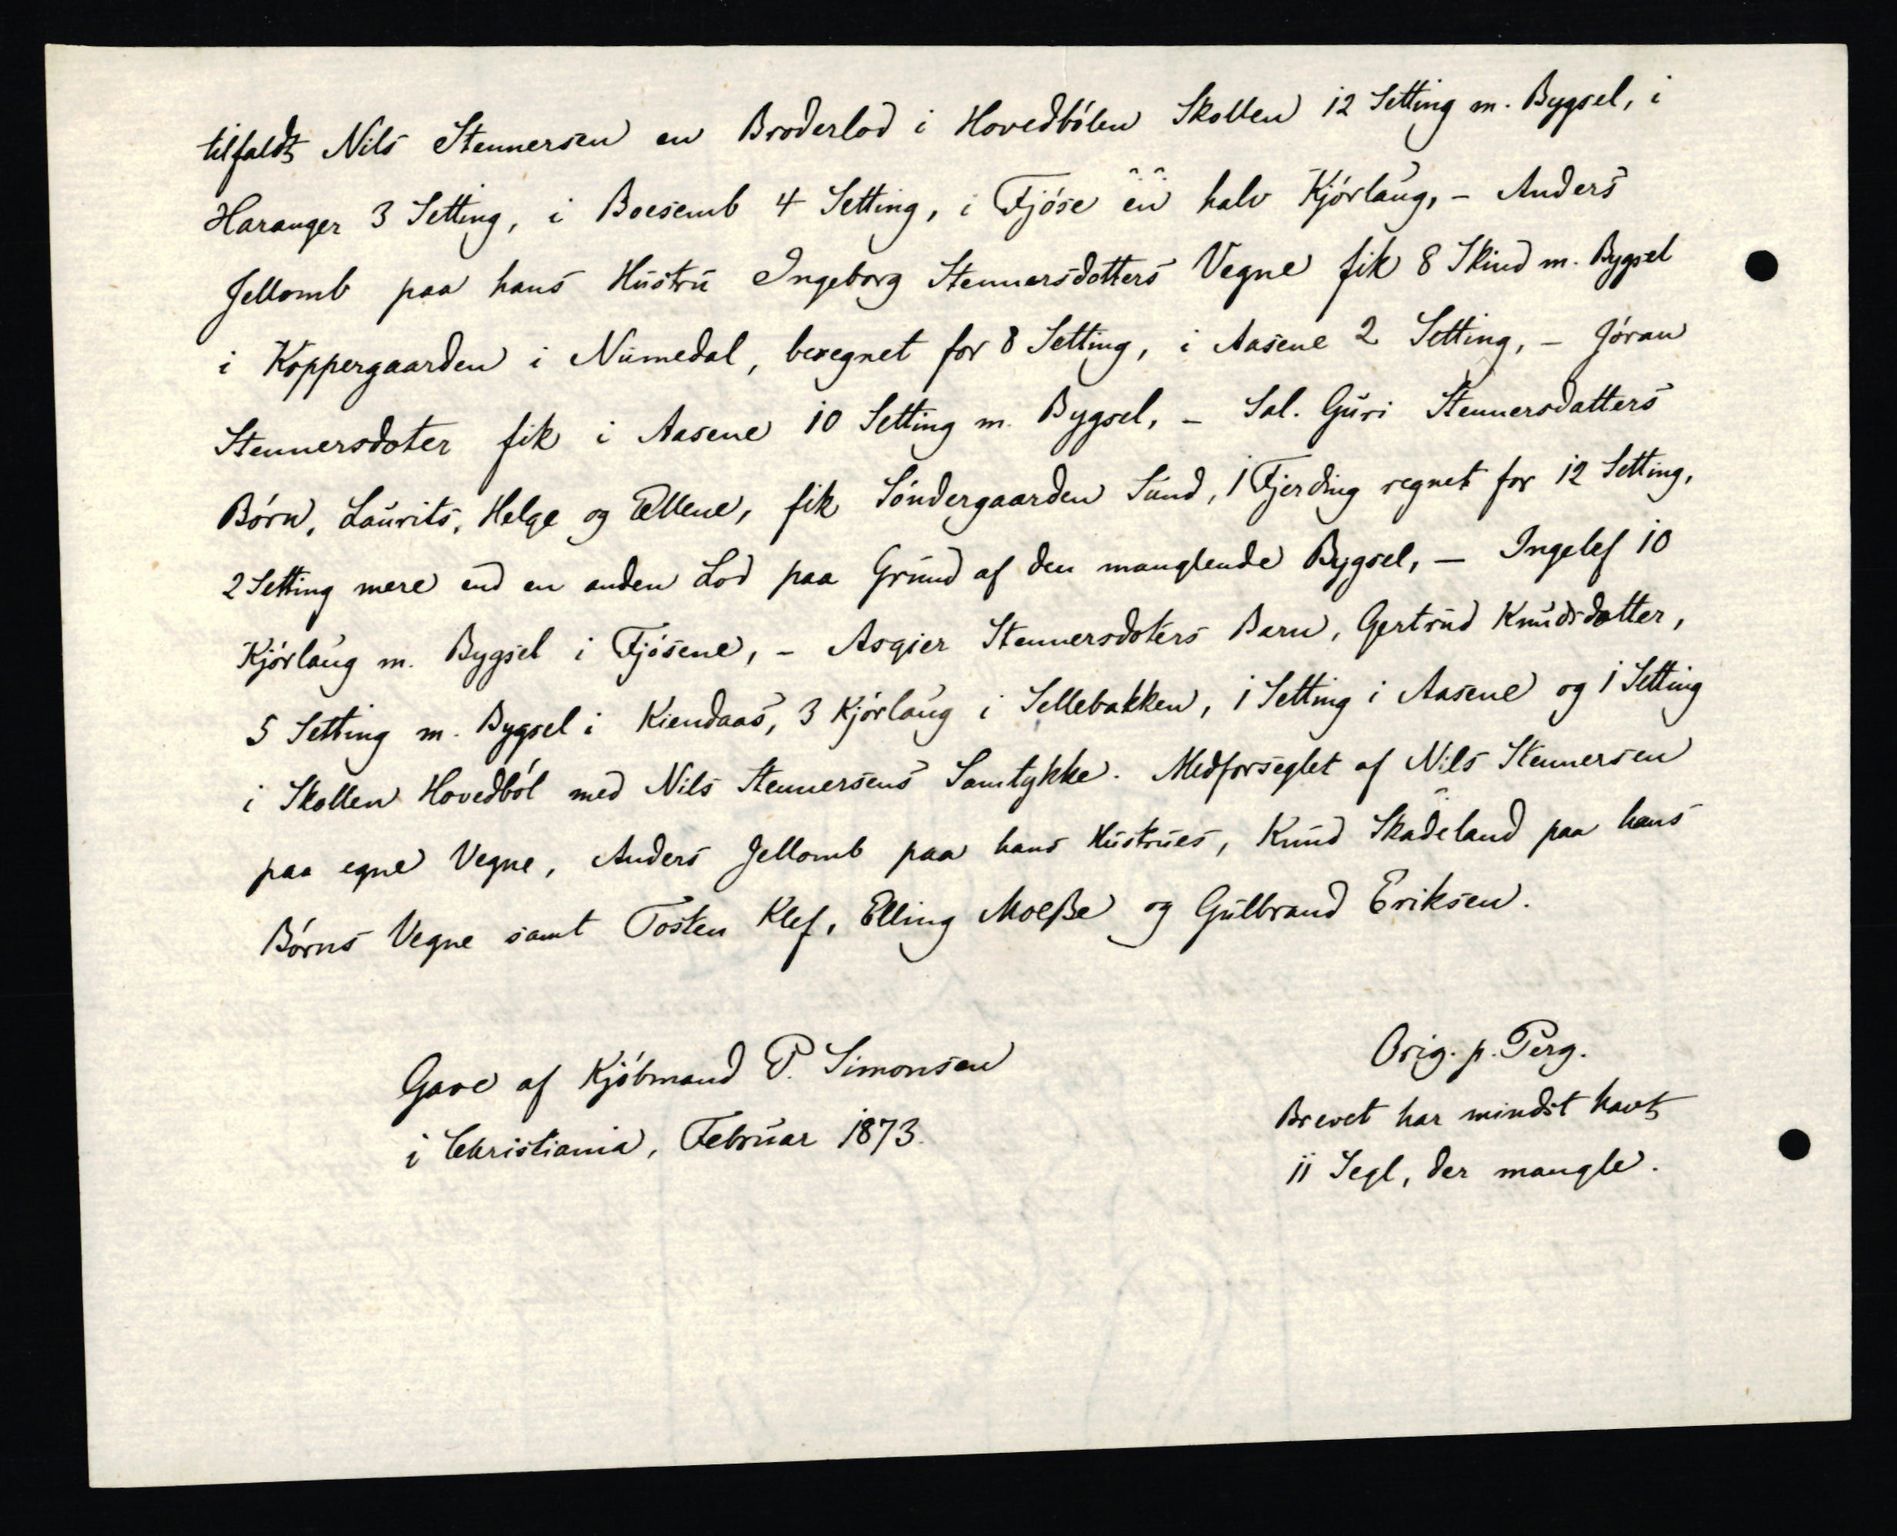 tilfaldt Nils Stennersen en Broderlod i Hovedbólen Skollen 12 Setting m. Bygsel, i
Haranger 3 Setting, i Boesemb 4 Setting, i Fjóse en halv Kjórlaug, – Anders
Jellomb paa hans Hustru Ingeborg Stennersdotters Vegne fik 8 Skind m. Bygsel
i Koppergaarden i Numedal, beregnet for 8 Setting, i Aasene 2 Setting, – Jóran
Stennersdoter fik i Aasene 10 Setting m. Bygsel, – Sal. Guri Stennersdatters
Bórn, Laurits, Helge og Ellene, fik Sóndergaarden Sund, 1 Fjerding regnet for 12 Setting,
2 Setting mere end en anden Lod paa Grund af den manglende Bygsel, – Ingelef 10
Kjórlaug m. Bygsel i Fjósene, – Asgier Stennersdoters Barn, Gertrud Knudsdatter,
5 Setting m. Bygsel i Kiendaas, 3 Kjórlaug i Sellebakken, 1 Setting i Aasene og 1 Setting
i Skollen Hovedból med Nils Stennersens Samtykke. Medforseglet af Nils Stennersen
paa egne Vegne, Anders Jellomb paa hans Hustrues, Knud Skadeland paa hans
Bórns Vegne samt Tosten Klef, Elling Moeße og Gulbrand Eriksen.
Gave af Kjóbmand P. Simonsen
i Christiania, Februar 1873.
Orig. p. Perg.
Brevet har mindst havt
11 Segl, der mangle.